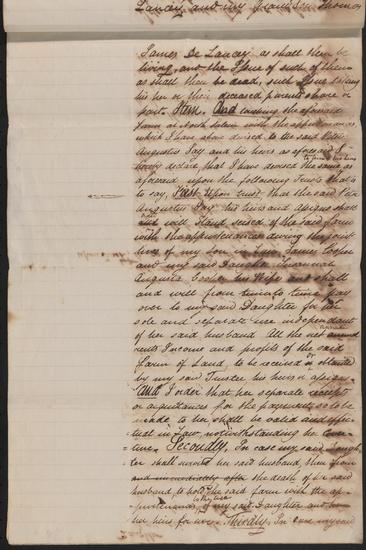 Lancey and my Grandson Thomas
James De Lancey as shall then be
living, and the Issue of such of them
as shall then be dead, such Issue taking
his her or their deceased parents share or
part. Item. And touching the aforesaid
Farm at North Salem with the appurtenances
which I have above devised to the said Peter
Augustus Jay and his heirs as aforesaid I
declare, that I have devised the same as
aforesaid upon the following Trusts that is
to say, First Upon trust, that the said Peter
Augustus Jay his heirs and Assigns shall
and will Stand seized of the said farm
with the appurtenances during the joint
lives of my son in Law James Cooper
and my said Daughter Susanna
Augusta Cooper his Wife and shall
and will from time to time pay
over to my said Daughter for her
sole and separate use independant
of her said husband All the net annual
rents Income and profits of the said
Farm of Land, to be received or obtained
by my said Trustee his heirs or assigns
And I order that her separate receipts
or acquittances for the payments so to be
made to her shall be valid and effec-
tual in Law, notwithstanding her Cover-
ture. Secondly. In case my said Daugh-
ter shall survive her said husband, then from
and immediately after the death of her said
husband, to hold the said farm with the ap-
purtenances to the use of my said Daughter and
her heirs for ever. Thirdly. In case my said